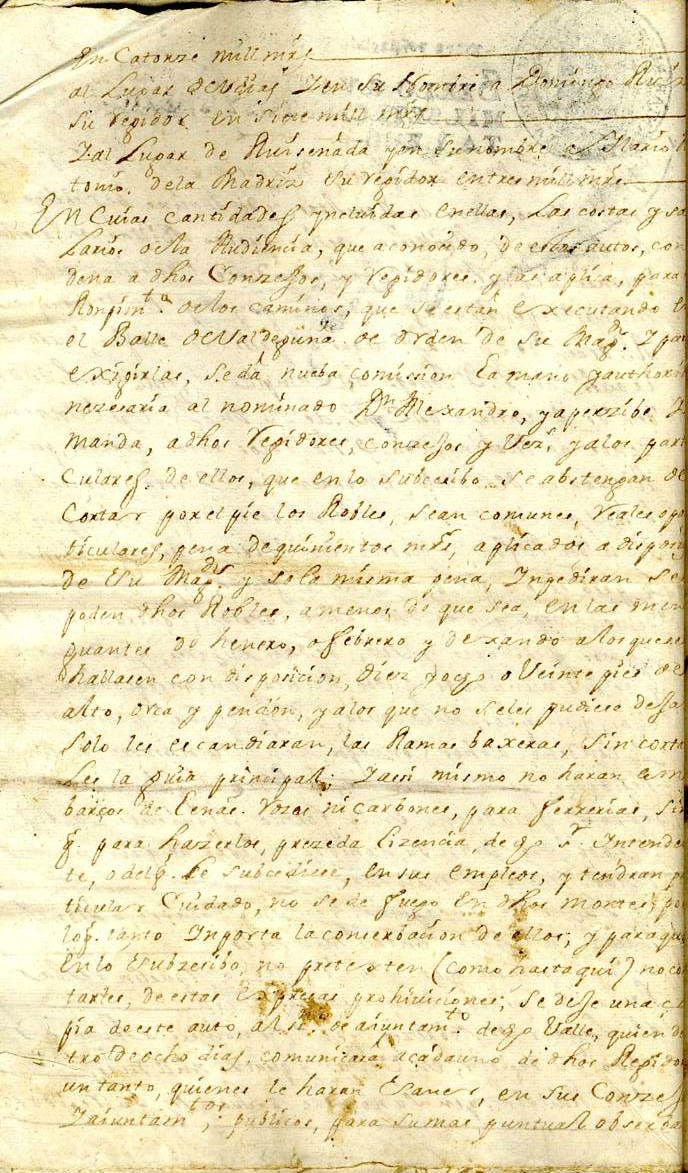 En Catorze mill mrs
al Lugar de Ueias Y en su Nombre a Domingo Ruiz
su rexidor en siete mill mrs
Y al Lugar de Ruiseñada y en su nombre a
tonio de la Madriz su rexidor en tres mill mrs
En Cuias cantidades yncluidas en ellas, las costas y sa
larios de la Audiencia, que a conocido, de estos autos, con
dena a dhos Conzejos, y rexidores y las aplica, para
Ronpimto. de los caminos, que se están executando en
el Balle de Valdeguña de orden de su Magd. Y para
exigirlas, se dá nueba comission La mano y authori
nezesaria al nominado Dn. Alexandro, y aperzibe Y
manda, a dhos rexidores, conzejos y Vezs. y a los parti
culares de ellos, que en lo subcesibo se abstengan de
Cortar por el pie los Robles, sean comunes, reales o par
ticulares, pena de quinientos mrs, aplicados a disposi
de su Magd. y so la misma pena, Ynpediran se
poden dhos Robles, a menos de que sea, en las men
guantes de henero, o febrero y dexando a los que se
hallasen con disposicion, diez y ocho o Veinte pies de
alto, orca y pendón, y a los que no se les pudiese dejar
solo les escandiaran, las Ramas baxeras, sin cortar
Les la guia principal; Y assi mismo no haran em
barços de Lenas. rozas ni carbones, para ferrerias, sin
q. para hazerlos, prezeda Lizencia, de dho Sr. Intenden
te, o del q. le subcediese, en sus empleos, y tendran par
ticular Cuidado, no se de fuego en dhos montes, por
lo q. tanto Inporta la conserbacion de ellos; y para que
En lo subzesibo, no pretesten (como hasta aqui) no co
tarles, de estas Expresas prohiviciones; se deje una co
pia de este auto, al sno. de aiuntamto. de dho Valle, quien den
tro de ocho dias, comunicará a cada uno de dhos Rexidores
un tanto, quienes le haran Saver, en sus Conzejos
Y aiuntamtos. publicos, para su mas puntual obserba